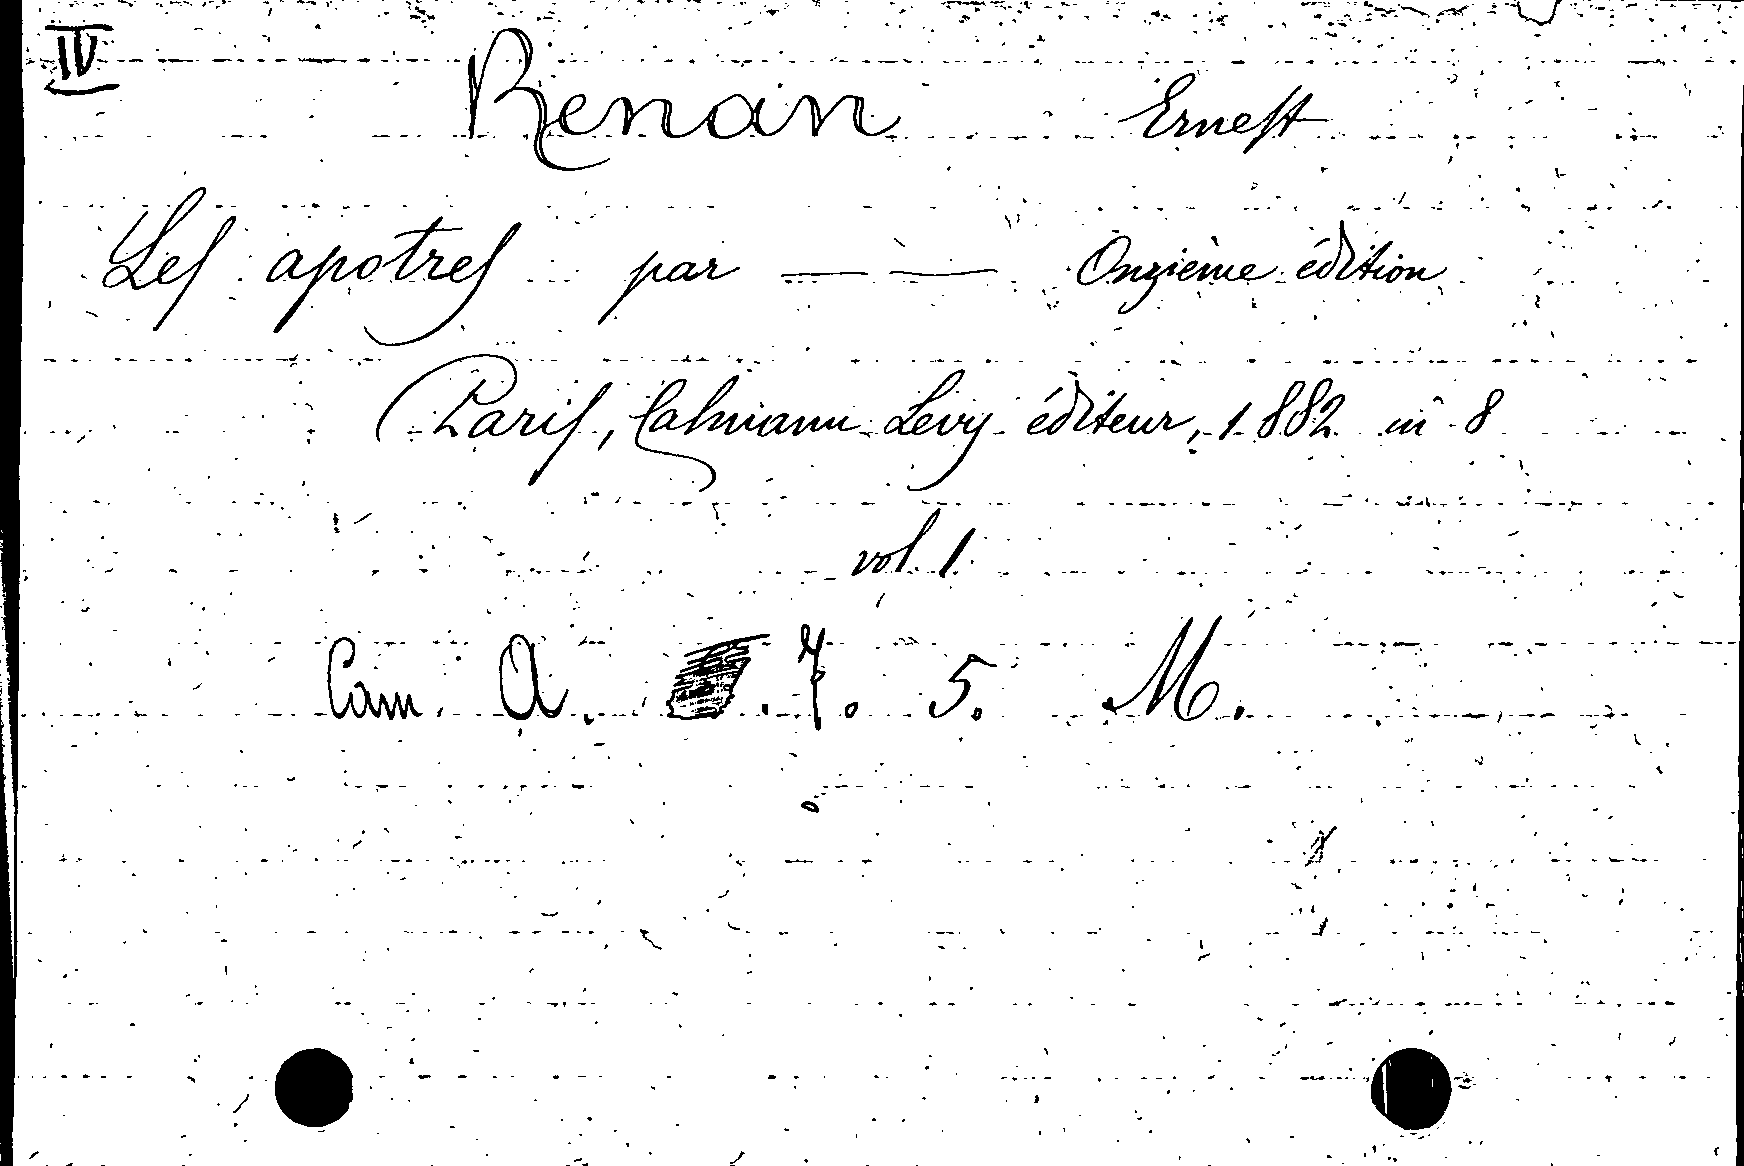 IV
Renan Ernest
Les apotres par — — Onzième édition
Paris, Calmann Levy éditeur, 1882 in 8
vol. 1
Cam. A. . 7. 5. M.